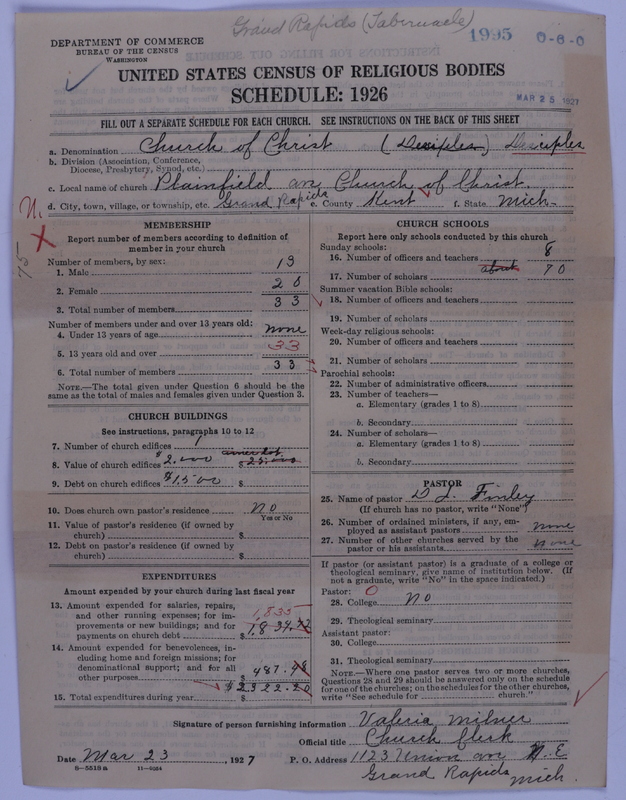 Grand Rapids (Tabernacle)
1995 0-6-0
DEPARTMENT OF COMMERCE
BUREAU OF THE CENSUS
WASHINGTON
UNITED STATES CENSUS OF RELIGIOUS BODIES
SCHEDULE: 1926
MAR 25 1927
FILL OUT A SEPARATE SCHEDULE FOR EACH CHURCH. SEE INSTRUCTIONS ON THE BACK OF THIS SHEET
a. Denomination Church of Christ (Disciples) Disciples
b. Division (Association, Conference,
Diocese, Presbytery, Synod, etc.)
c. Local name of church Plainfield av Church of Christ.
d. City, town, village, or township, etc. Grand Rapids e. County Kent f. State Mich.
75
MEMBERSHIP
Report number of members according to definition of
member in your church
Number of members, by sex:
1. Male 13
2. Female 20
3. Total number of members 33
Number of members under and over 13 years old:
4. Under 13 years of age none
5. 13 years old and over 33
6. Total number of members 33
NOTE.—The total given under Question 6 should be the
same as the total of males and females given under Question 3.
CHURCH BUILDINGS
See instructions, paragraphs 10 to 12
7. Number of church edifices 1
8. Value of church edifices $2,000
9. Debt on church edifices $1,500
10. Does church own pastor's residence No
Yes or No
11. Value of pastor's residence (if owned by
church) $
12. Debt on pastor's residence (if owned by
church) $
EXPENDITURES
Amount expended by your church during last fiscal year
13. Amount expended for salaries, repairs,
and other running expenses; for im-
provements or new buildings; and for
payments on church debt $ 1,834.72
1,835
14. Amount expended for benevolences, in-
cluding home and foreign missions; for
denominational support; and for all
other purposes $ 487.48
15. Total expenditures during year $ $2322.20
CHURCH SCHOOLS
Report here only schools conducted by this church
Sunday schools:
16. Number of officers and teachers 8
17. Number of scholars about 70
Summer vacation Bible schools:
18. Number of officers and teachers
19. Number of scholars
Week-day religious schools:
20. Number of officers and teachers
21. Number of scholars
Parochial schools:
22. Number of administrative officers
23. Number of teachers—
a. Elementary (grades 1 to 8)
b. Secondary
24. Number of scholars—
a. Elementary (grades 1 to 8)
b. Secondary
PASTOR
25. Name of pastor D L. Finley
(If church has no pastor, write "None")
26. Number of ordained ministers, if any, em-
ployed as assistant pastors none
27. Number of other churches served by the
pastor or his assistants none
If pastor (or assistant pastor) is a graduate of a college or
theological seminary, give name of institution below. (If
not a graduate, write "No" in the space indicated.)
Pastor: 0
28. College No
29. Theological seminary
Assistant pastor:
30. College
31. Theological seminary
NOTE.—Where one pastor serves two or more churches,
Questions 28 and 29 should be answered only on the schedule
for one of the churches; on the schedules for the other churches,
write "See schedule for church."
Signature of person furnishing information Valeria Milner
Official title Church Clerk
Date Mar 23, 1927 P. O. Address 1123 Union av N.E
8-5518a 11-9024 Grand Rapids Mich.